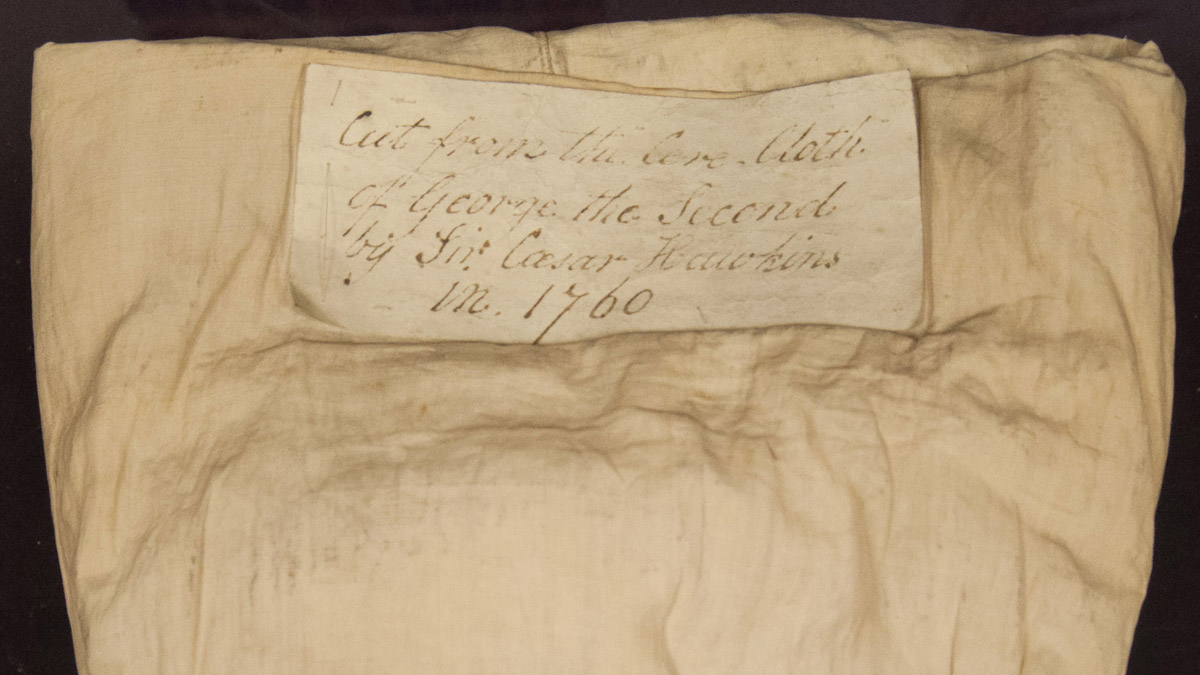 Cut from the Cere-Cloth
of George the Second
by Sir. Cæsar Hawkins
in. 1760